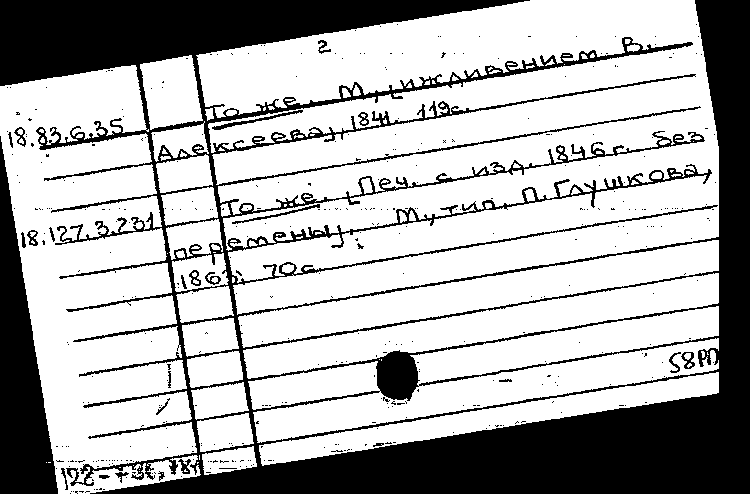 2
18.83.6.35 То же. М., [иждивением В.
Алексеева], 1841. 119с.
18.127.3.231 То же. [Печ. с изд. 1846г. без
перемены]. М., тип. П. Глушкова,
1863. 70с.
58РП
128-